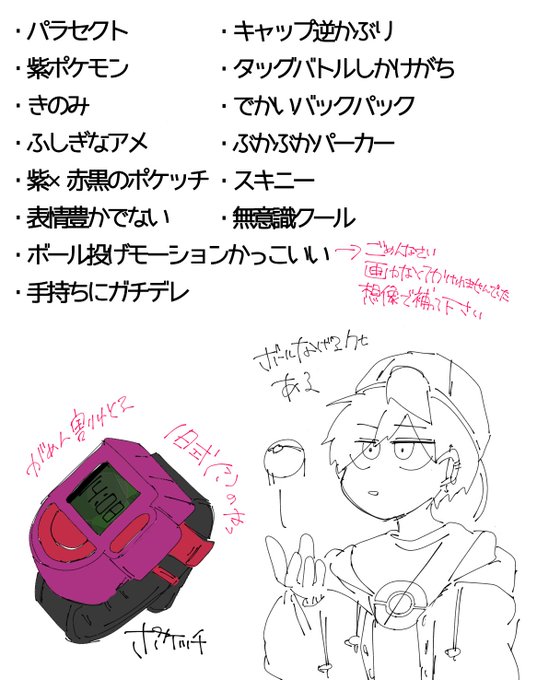 ・パラセクト
・紫ポケモン
・きのみ
・ふしぎなアメ
・紫×赤黒のポケッチ
・表情豊かでない
・ボール投げモーションかっこいい
・手持ちにガチデレ
・キャップ逆かぶり
・タッグバトルしかけがち
・でかいバックパック
・ぶかぶかパーカー
・スキニー
・無意識クール
→ごめんなさい
画力なくてかけませんでした
想像で補って下さい
ボールなげるクセ
ある
がめん割れてる
旧式(?)のやつ
14:08
ポケッチ